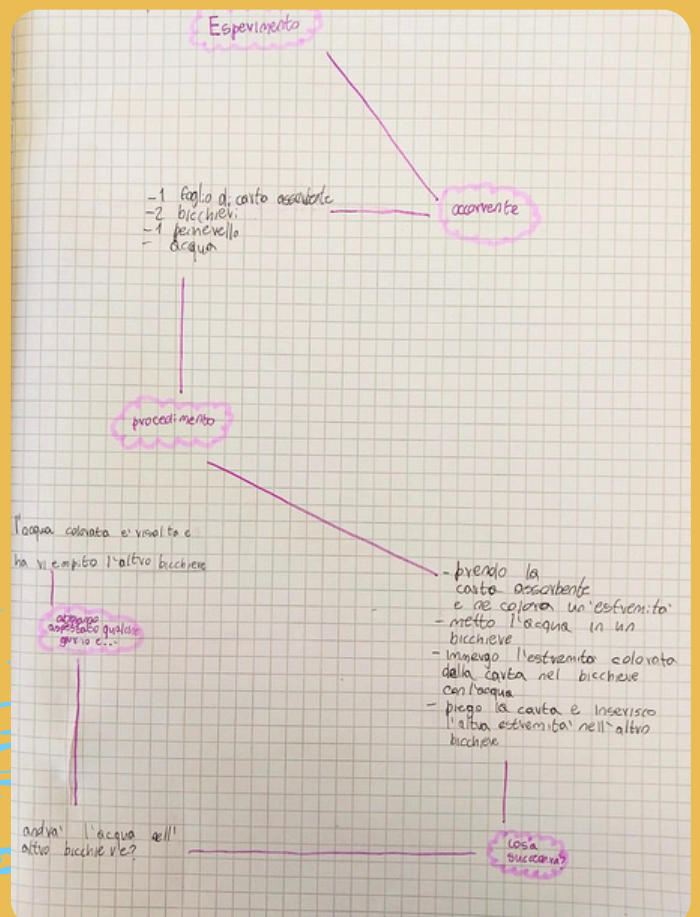 Esperimento
occorrente
-1 foglio di carta assorbente
-2 bicchieri
-1 pennevello
- acqua
procedimento
- prendo la
carta assorbente
e ne coloro un'estremita'
- metto l'acqua in un
bicchiere
- immergo l'estremita colorata
della carta nel bicchiere
con l'acqua
- piego la carta e inserisco
l'altra estremita' nell'altro
bicchiere
cosa
succederà?
andra' l'acqua nell'
altro bicchiere?
abbiamo
aspettato qualche
giorno e...
l'acqua colorata e' risalita e
ha riempito l'altro bicchiere